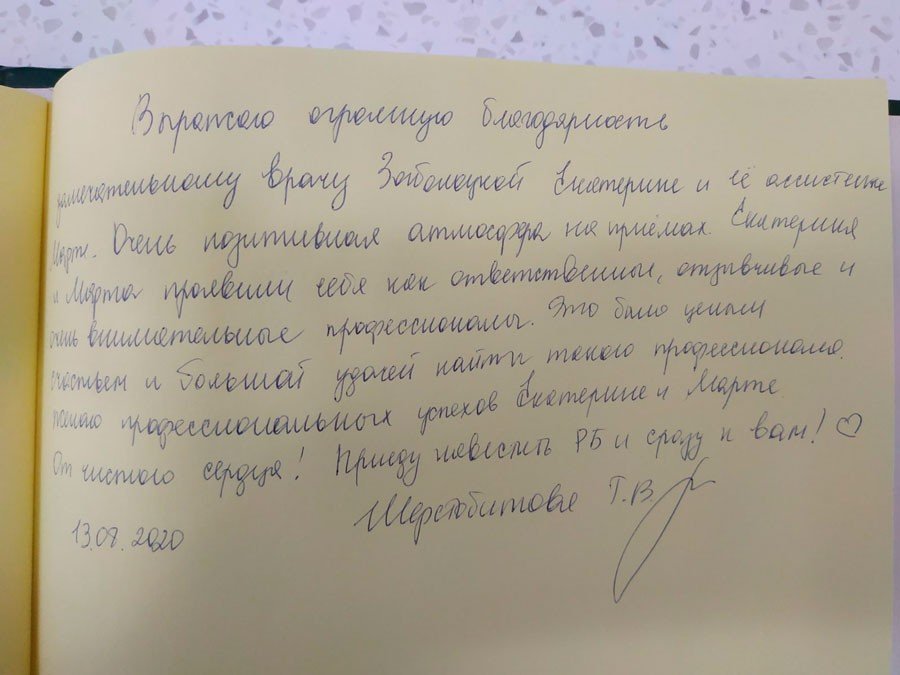 Выражаю огромную благодарность
замечательному врачу Заболоцкой Екатерине и её ассистенке
Марте. Очень позитивная атмосфера на приёмах. Екатерина
и Марта проявили себя как ответственные, отзывчивые и
очень внимательные профессионалы. Это было целым
счастьем и большой удачей найти такого профессионала.
Желаю профессиональных успехов Екатерине и Марте
От чистого сердца! Приеду навестить РБ и сразу к вам! ♡
Шерстобитова Т.В.
13.08.2020